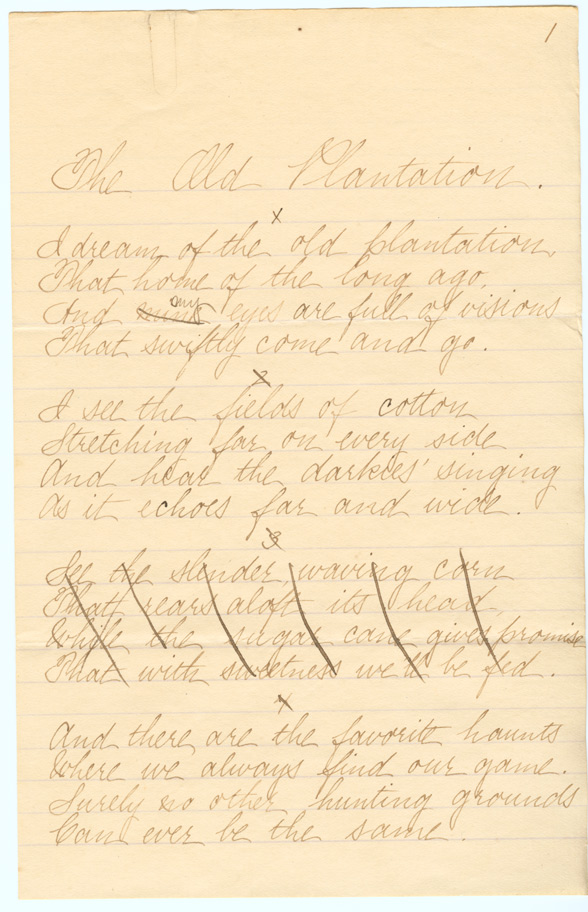 1
The Old Plantation.
x
I dream of the old plantation,
That home of the long ago,
And mine my eyes are full of visions
That swiftly come and go.
2
I see the fields of cotton
Stretching far on every side
And hear the darkies' singing
As it echoes far and wide.
3
See the slender, waving corn
That rears aloft its head,
While the sugar cane gives promise
That with sweetness we'll be fed.
x
And there are the favorite haunts
Where we always find our game.
Surely no other hunting grounds
Can ever be the same.